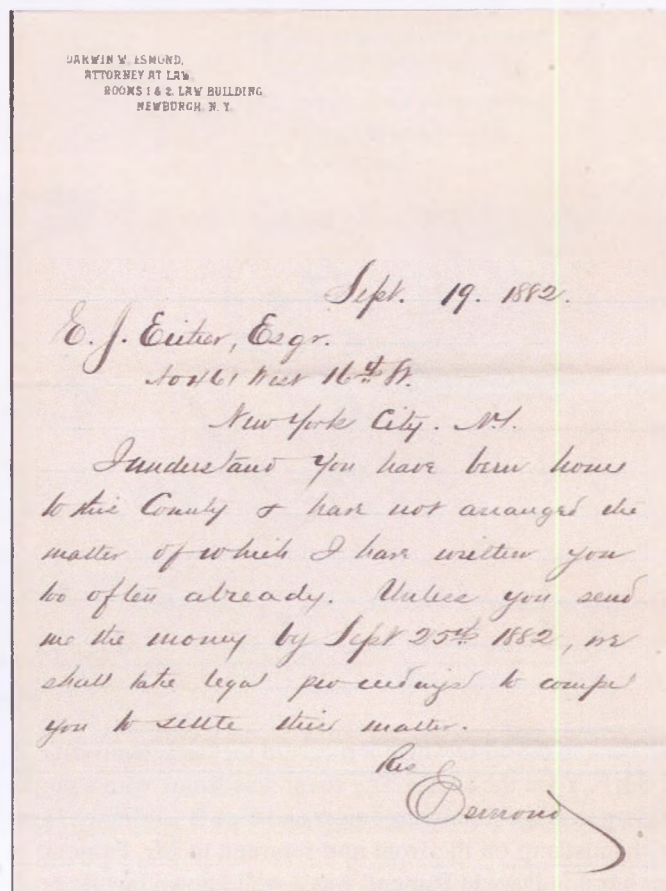 DARWIN W. ESMOND,
ATTORNEY AT LAW,
ROOMS 1 & 2, LAW BUILDING
NEWBURGH, N. Y.
Sept. 19. 1882.
E. J. Esqr.
West 16th St.
New York City. N.Y.
I understand you have been home
to this County & have not arranged the
matter of which I have written you
too often already. Unless you send
me the money by Sept 25th 1882, we
shall take legal proceedings to compel
you to settle this matter.
Res
Esmond